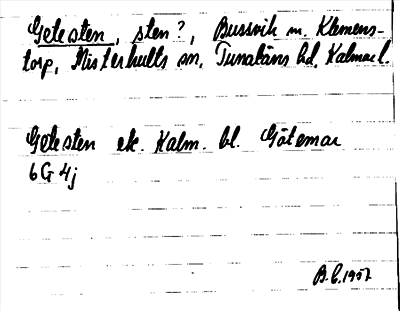 Getesten, sten?, Bussvik m. Klemens-
torp, Misterhults sn, Tunaläns hd, Kalmar l.
Getesten ek. Kalm. bl. Götemar
6G 4j
B.C. 1957